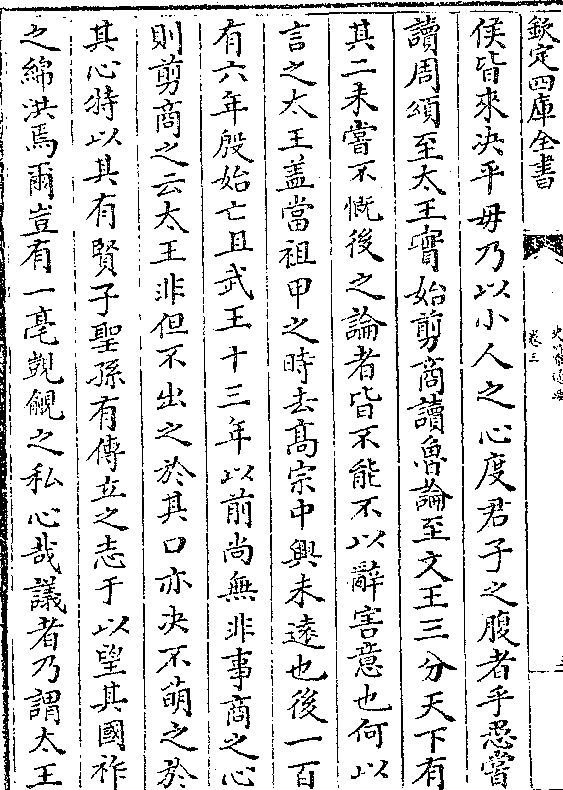 欽定四庫全書
卷三
侯皆來决平毋乃以小人之心度君子之腹者乎愚嘗
讀周頌至太王實始剪商讀魯論至文王三分天下有
其二未嘗不慨後之論者皆不能不以辭害意也何以
言之太王盖當祖甲之時去髙宗中興未遠也後一百
有六年殷始亡且武王十三年以前尚無非事商之心
則剪商之云太王非但不出之於其口亦决不萌之於
其心特以其有賢子聖孫有傳立之志于以望其國祚
之綿洪焉爾豈有一毫覬覦之私心哉議者乃謂太王